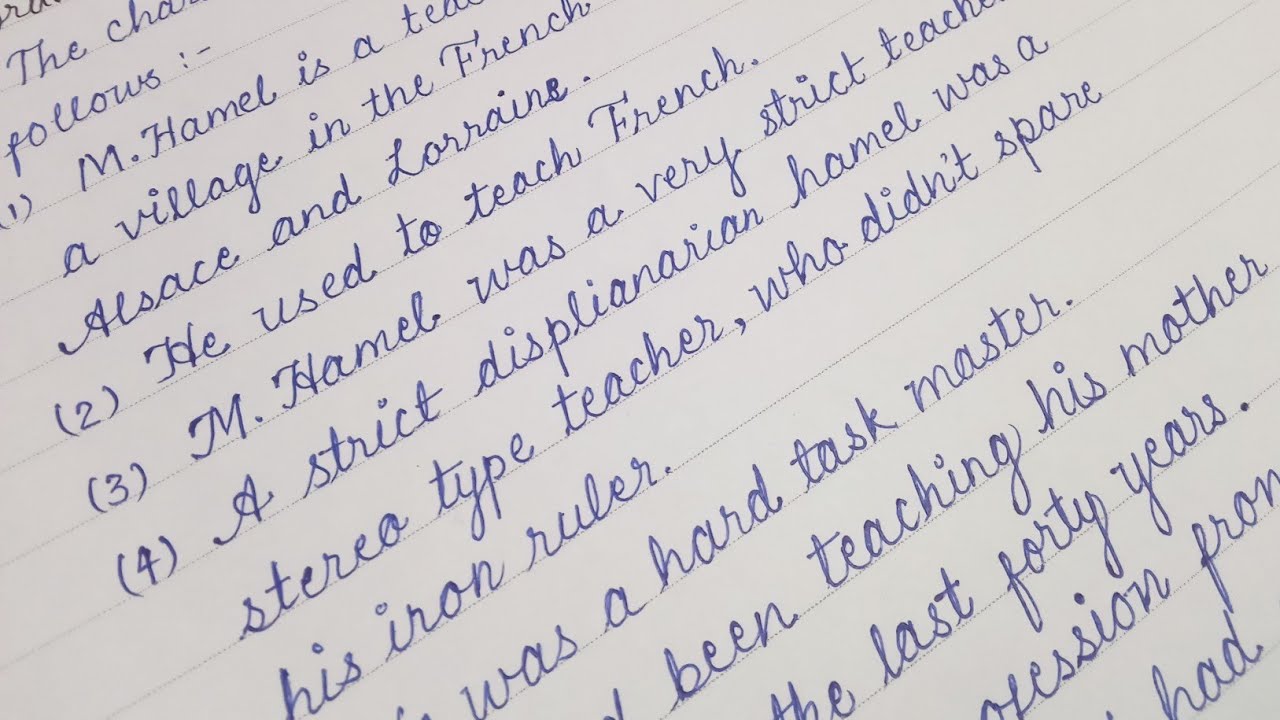 The
follows :-
(1) M. Hamel is a
a village in the French
Alsace and Lorraine.
(2) He used to teach French.
(3) M. Hamel was a very strict
(4) A strict displianarian hamel was a
stereo type teacher, who didn't spare
his iron ruler.
was a hard task master.
been teaching his mother
the last forty years.
had